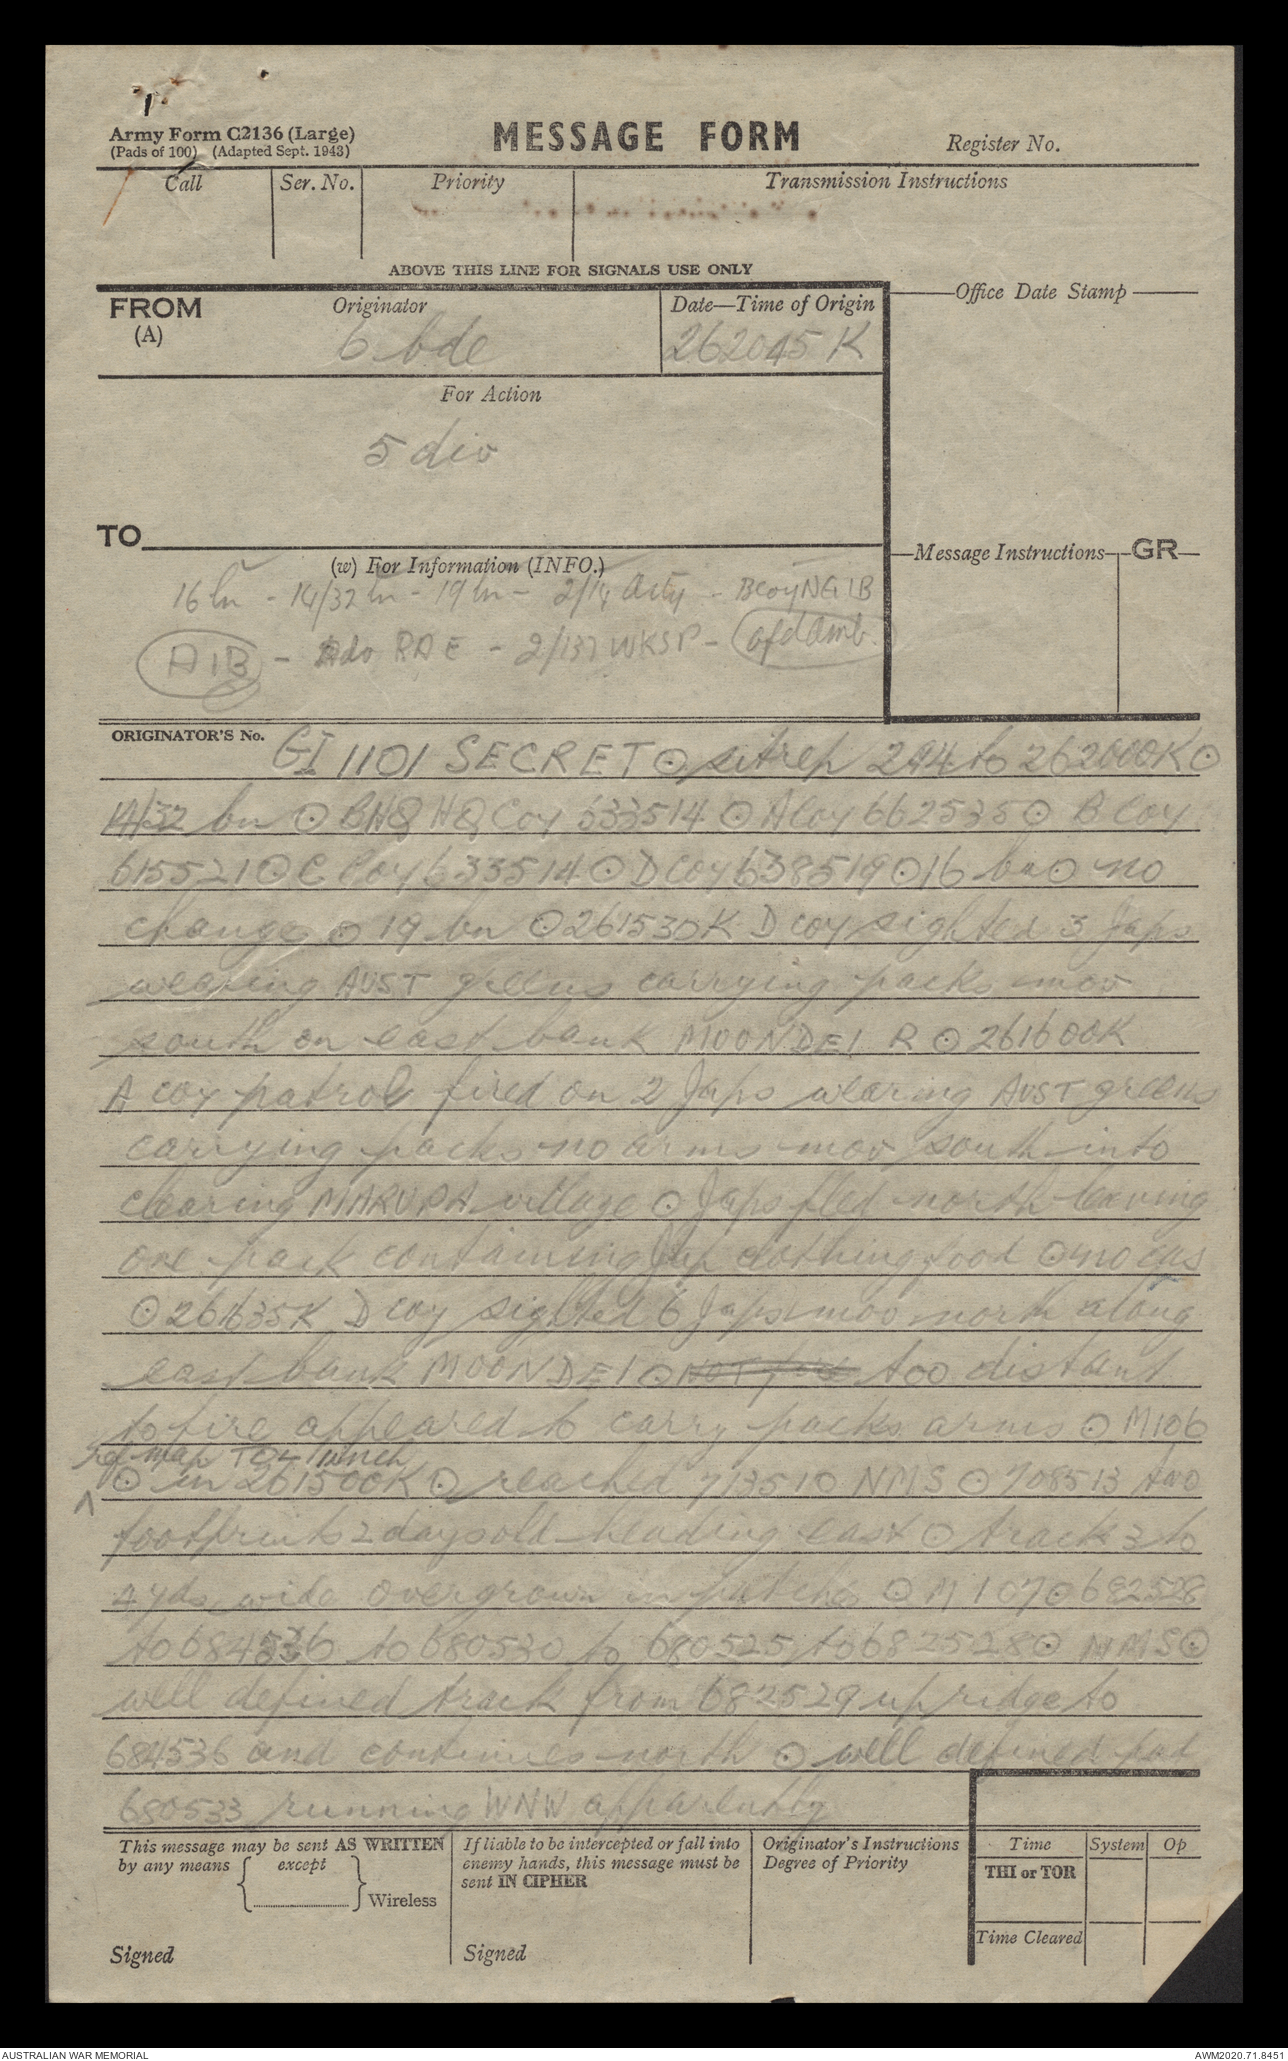 Army Form C2136 (Large)
(Pads of 100) (Adapted Sept. 1943)
MESSAGE FORM
Register No.
Call
Ser. No.
Priority
Transmission Instructions
ABOVE THIS LINE FOR SIGNALS USE ONLY
FROM
(A)
Originator
6 bde
Date—Time of Origin
262045 K
Office Date Stamp
For Action
5 div
TO
(w) For Information (INFO.)
Message Instructions
GR
16 bn - 14/32 bn - 19 bn - 2/14 arty - B Coy NGIB
AIB - Adv RAE - 2/137 WKSP - fd amb.
ORIGINATOR'S No.
GI 1101 SECRET ⊙ sitrep 294 to 262000K ⊙
14/32 bn ⊙ BHQ HQ Coy 633514 ⊙ A Coy 662535 ⊙ B Coy
615521 ⊙ C Coy 633514 ⊙ D Coy 638519 ⊙ 16 bn ⊙ no
change ⊙ 19 bn ⊙ 261530K D coy sighted 3 Japs
wearing AUST greens carrying packs mov
south on east bank MOONDEI R ⊙ 261600K
A coy patrol fired on 2 Japs wearing AUST greens
carrying packs no arms mov south into
clearing MAKUPA village ⊙ Japs fled north leaving
one pack containing Jap clothing food ⊙ no cas
⊙ 261635K D coy sighted 6 Japs mov north along
east bank MOONDEI ⊙ too distant
to fire appeared to carry packs arms ⊙ M106
ref map TOL 1 inch
⊙ in 261500K ⊙ reached 713510 NMS ⊙ 708513 two
footprints 2 days old heading east ⊙ track 3 to
4 yds wide overgrown in patches ⊙ M107 ⊙ 682528
to 684536 to 680530 to 680525 to 682528 ⊙ NMS ⊙
well defined track from 682529 up ridge to
684536 and continues north ⊙ well defined pad
680533 running WNW apparently
This message may be sent AS WRITTEN
by any means { except } Wireless
If liable to be intercepted or fall into
enemy hands, this message must be
sent IN CIPHER
Originator's Instructions
Degree of Priority
Time
System
Op
THI or TOR
Time Cleared
Signed
Signed
AUSTRALIAN WAR MEMORIAL
AWM2020.71.8451